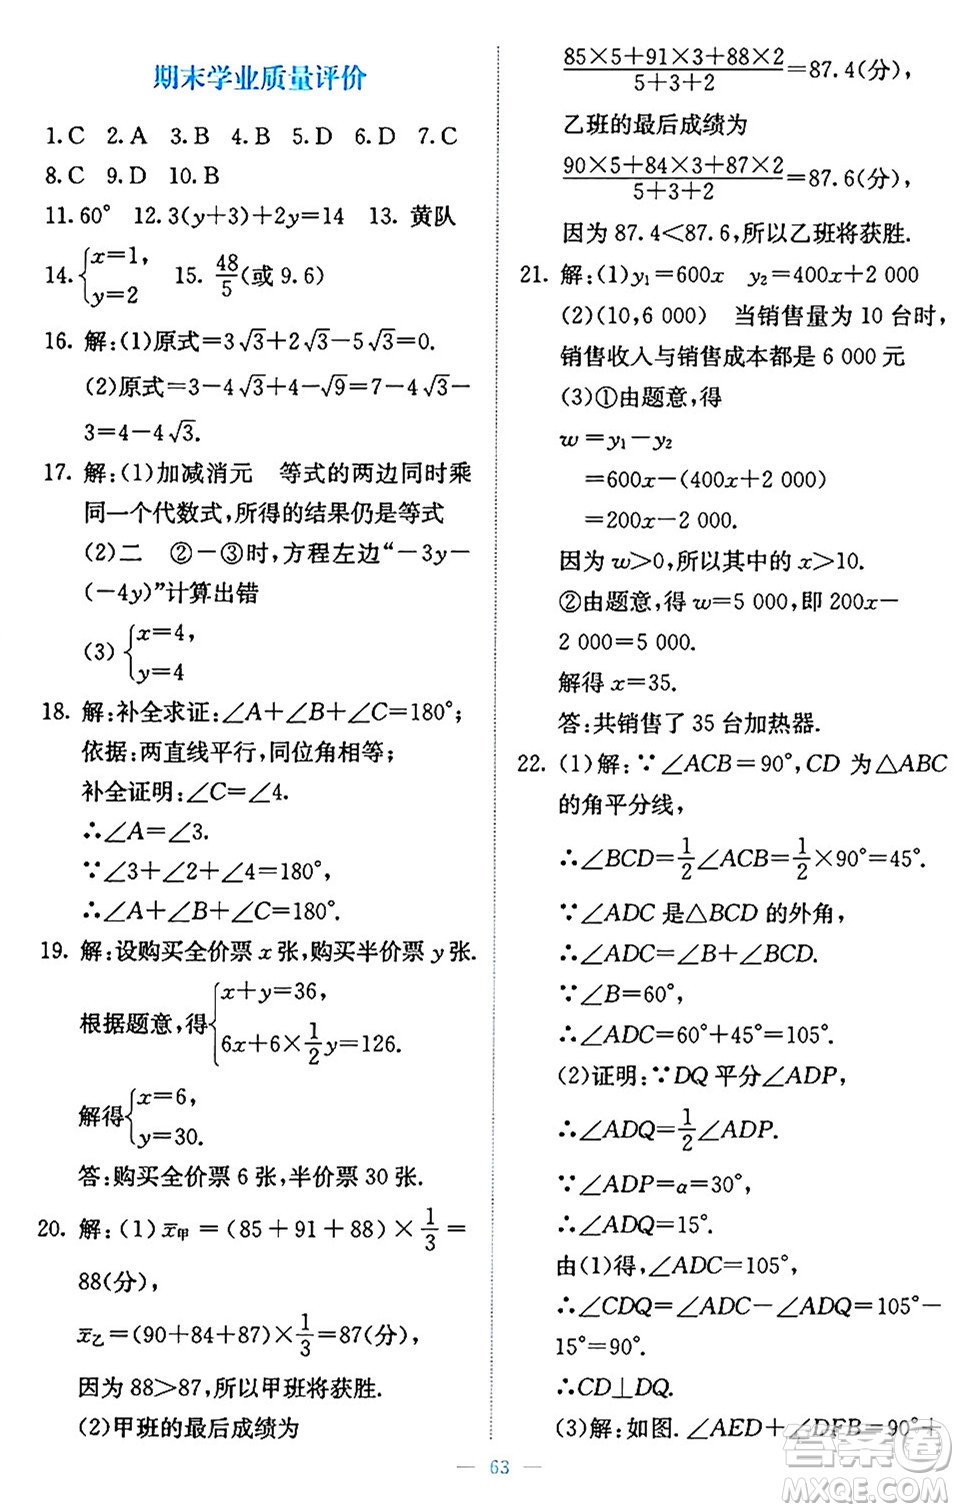 期末学业质量评价
1.C 2.A 3.B 4.B 5.D 6.D 7.C
8.C 9.D 10.B
11.60° 12.3(y+3)+2y=14 13. 黄队
14.{x=1, y=2 15. 48/5(或 9.6)
16. 解:(1)原式=3√3+2√3-5√3=0.
(2)原式=3-4√3+4-√9=7-4√3-
3=4-4√3.
17. 解:(1)加减消元 等式的两边同时乘
同一个代数式,所得的结果仍是等式
(2)二 ②-③时,方程左边“-3y-
(-4y)”计算出错
(3){x=4, y=4
18. 解:补全求证:∠A+∠B+∠C=180°;
依据:两直线平行,同位角相等;
补全证明:∠C=∠4.
∴∠A=∠3.
∵∠3+∠2+∠4=180°,
∴∠A+∠B+∠C=180°.
19. 解:设购买全价票 x 张,购买半价票 y 张.
根据题意,得{x+y=36, 6x+6×1/2y=126.
解得{x=6, y=30.
答:购买全价票 6 张,半价票 30 张.
20. 解:(1)x̄甲=(85+91+88)×1/3=
88(分),
x̄乙=(90+84+87)×1/3=87(分),
因为 88>87,所以甲班将获胜.
(2)甲班的最后成绩为
(85×5+91×3+88×2)/(5+3+2)=87.4(分),
乙班的最后成绩为
(90×5+84×3+87×2)/(5+3+2)=87.6(分),
因为 87.4<87.6,所以乙班将获胜.
21. 解:(1)y₁=600x y₂=400x+2 000
(2)(10,6 000) 当销售量为 10 台时,
销售收入与销售成本都是 6 000 元
(3)①由题意,得
w=y₁-y₂
=600x-(400x+2 000)
=200x-2 000.
因为 w>0,所以其中的 x>10.
②由题意,得 w=5 000,即 200x-
2 000=5 000.
解得 x=35.
答:共销售了 35 台加热器.
22. (1)解:∵∠ACB=90°,CD 为△ABC
的角平分线,
∴∠BCD=1/2∠ACB=1/2×90°=45°.
∵∠ADC 是△BCD 的外角,
∴∠ADC=∠B+∠BCD.
∵∠B=60°,
∴∠ADC=60°+45°=105°.
(2)证明:∵DQ 平分∠ADP,
∴∠ADQ=1/2∠ADP.
∵∠ADP=α=30°,
∴∠ADQ=15°.
由(1)得,∠ADC=105°,
∴∠CDQ=∠ADC-∠ADQ=105°-
15°=90°.
∴CD⊥DQ.
(3)解:如图.∠AED+∠DFB=90°+
63
答案圈
MXQE.COM